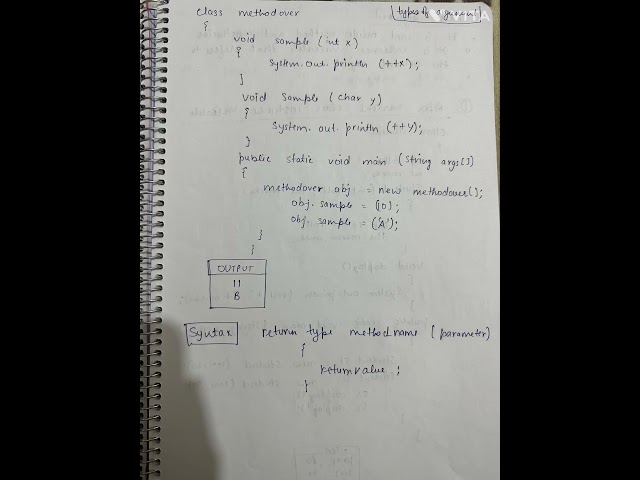 class methodover
(types of argument)
{
void sample (int x)
{
System.out.println (++x);
}
void Sample (char y)
{
System.out.println (++y);
}
public static void main (String args[])
{
methodover obj = new methodover();
obj. sample = (10);
obj. sample = ('A');
}
}
OUTPUT
11
B
Syntax return type method name (parameter)
{
return value ;
}